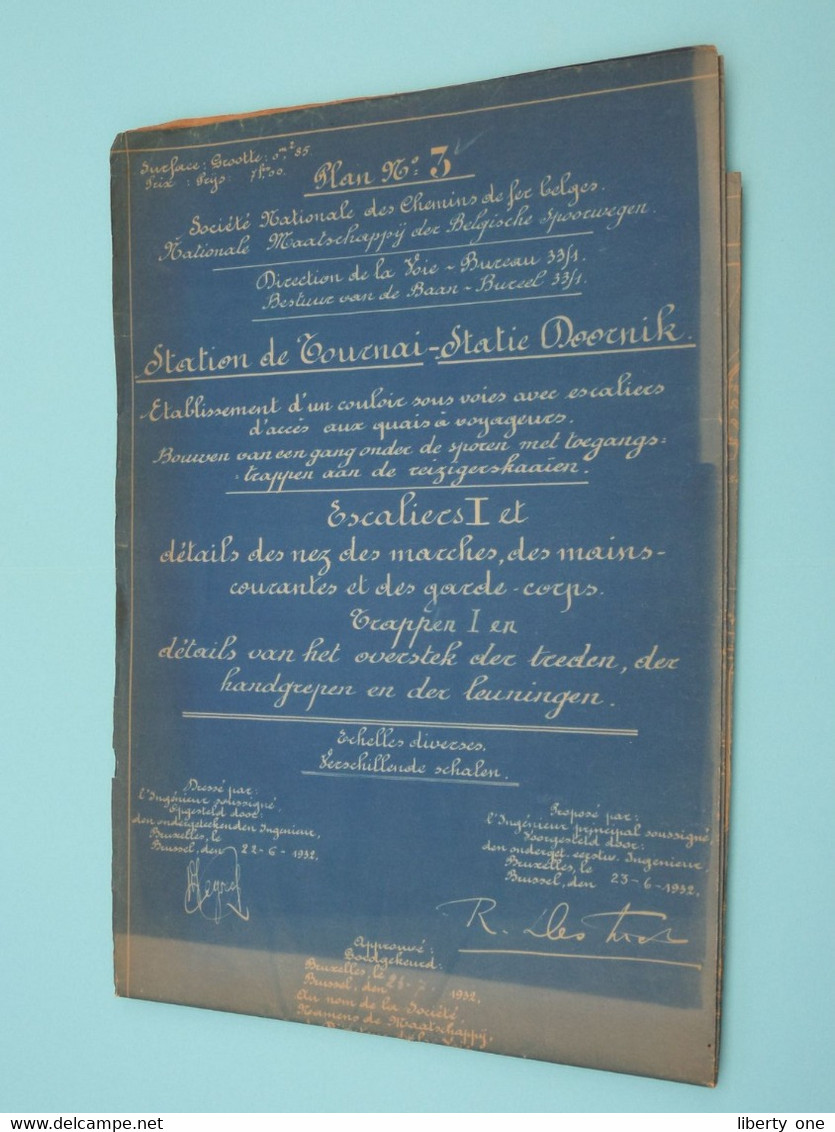 Surface : Grootte : 0m²35.
Prix : Prijs : 7fr00.
Plan No: 3
Société Nationale des Chemins de fer belges.
Nationale Maatschappij der Belgische Spoorwegen.
Direction de la Voie - Bureau 33/1.
Bestuur van de Baan - Bureel 33/1.
Station de Tournai - Statie Doornik.
Etablissement d'un couloir sous voies avec escaliers
d'accès aux quais à voyageurs.
Bouwen van een gang onder de sporen met toegangs=
trappen aan de reizigerskaaien.
Escaliers I et
détails des nez des marches, des mains-
courantes et des garde-corps.
Trappen I en
détails van het overstek der treden, der
handgrepen en der leuningen.
Echelles diverses.
Verschillende schalen.
Dressé par:
l'Ingénieur soussigné,
Opgesteld door:
den ondergeteekenden Ingenieur,
Bruxelles, le
Brussel, den 22-6-1932.
Proposé par:
l'Ingénieur principal soussigné,
Voorgesteld door:
den onderget. eerstw. Ingenieur,
Bruxelles, le
Brussel, den 23-6-1932.
R.
Approuvé:
Goedgekeurd:
Bruxelles, le
Brussel, den 1932.
Au nom de la Société
Namens de Maatschappij,
delcampe.net
liberty one